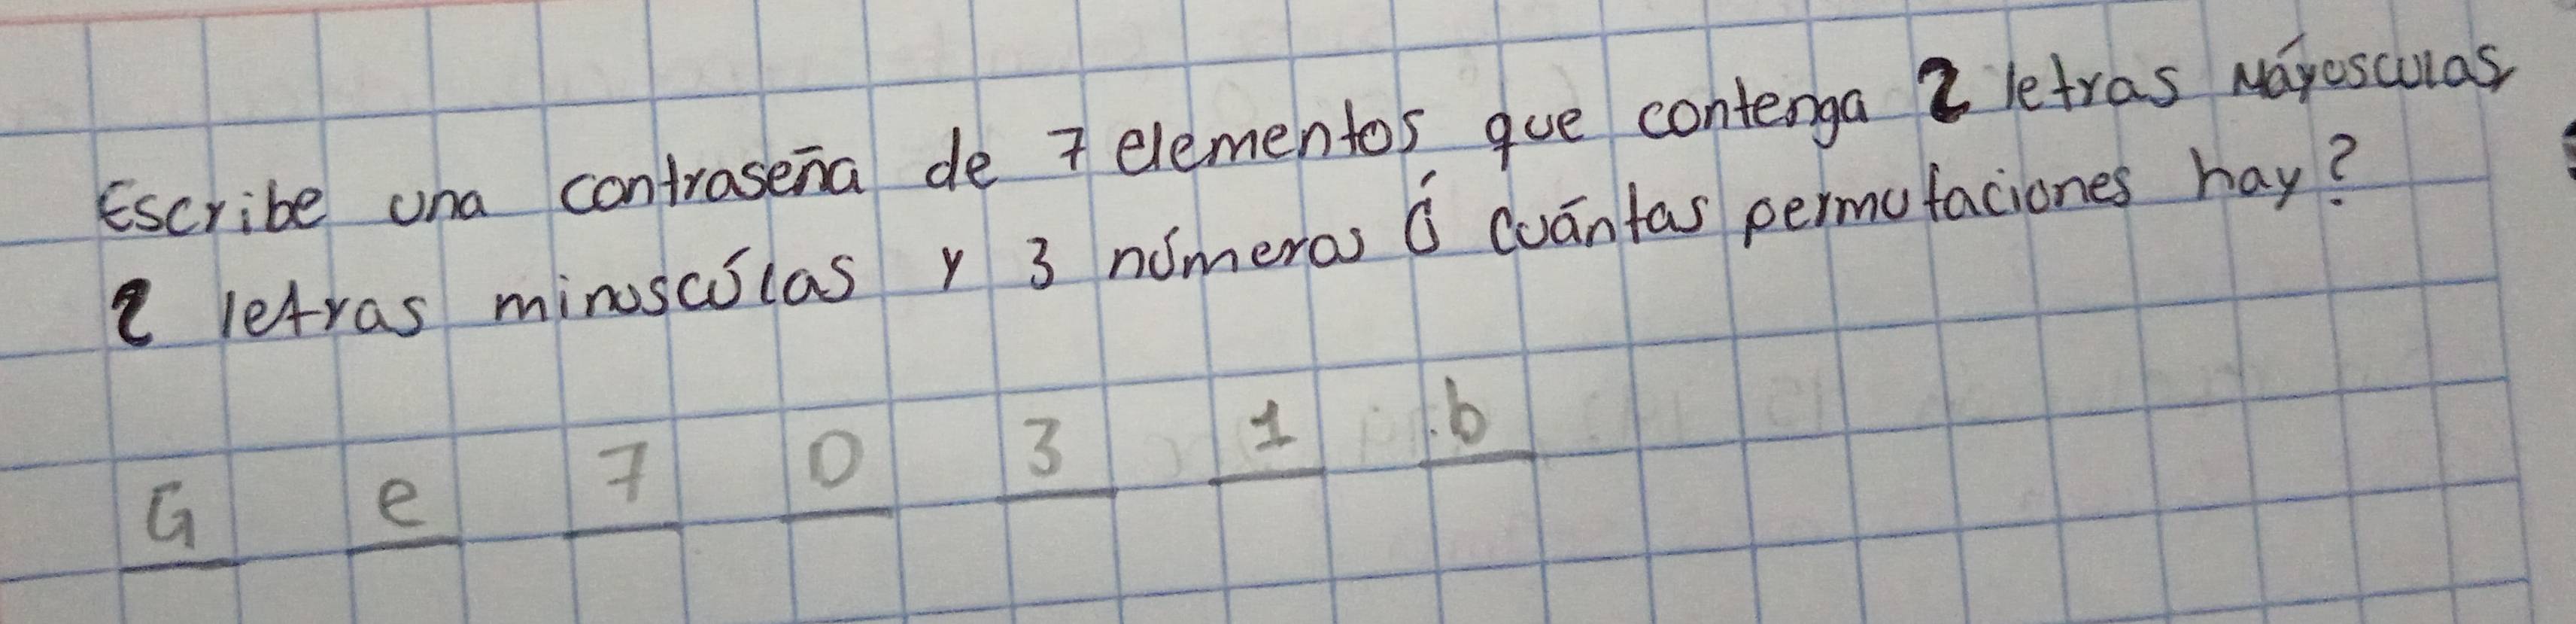 Escribe una contraseña de 7 elementos que contenga 2 letras Máyosculas
2 letras minuscúlas y 3 números ó cuántas permutaciones hay?
G e 7 D 3 1 b